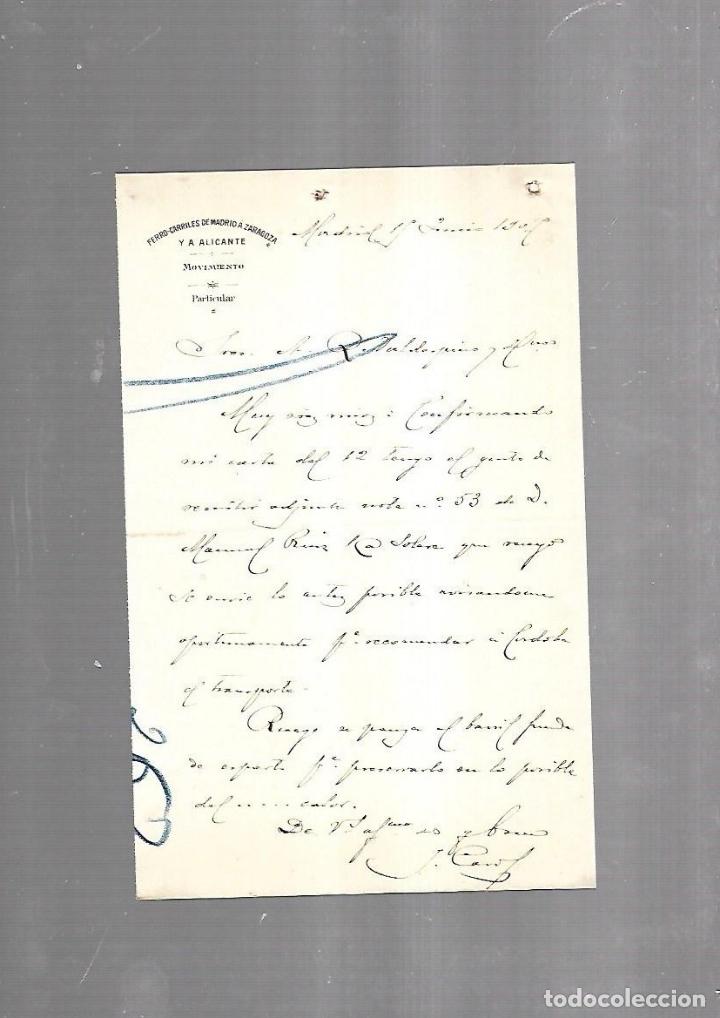 FERRO-CARRILES DE MADRID A ZARAGOZA
Y A ALICANTE
MOVIMIENTO
Particular
Madrid Junio
Sres. A. R. Valdespino y Hnos
Muy Sres mios: Confirmando
mi carta del 12 tengo el gusto de
remitir adjunta nota nº 53 de D.
Manuel Ruiz que ruego
se envie lo antes posible avisandome
oportunamente pª recomendar á Cordoba
el transporte.
Ruego se ponga el barril funda
de esparto pª preservarlo en lo posible
del calor.
De Vs afmo
J.
todocoleccion.net